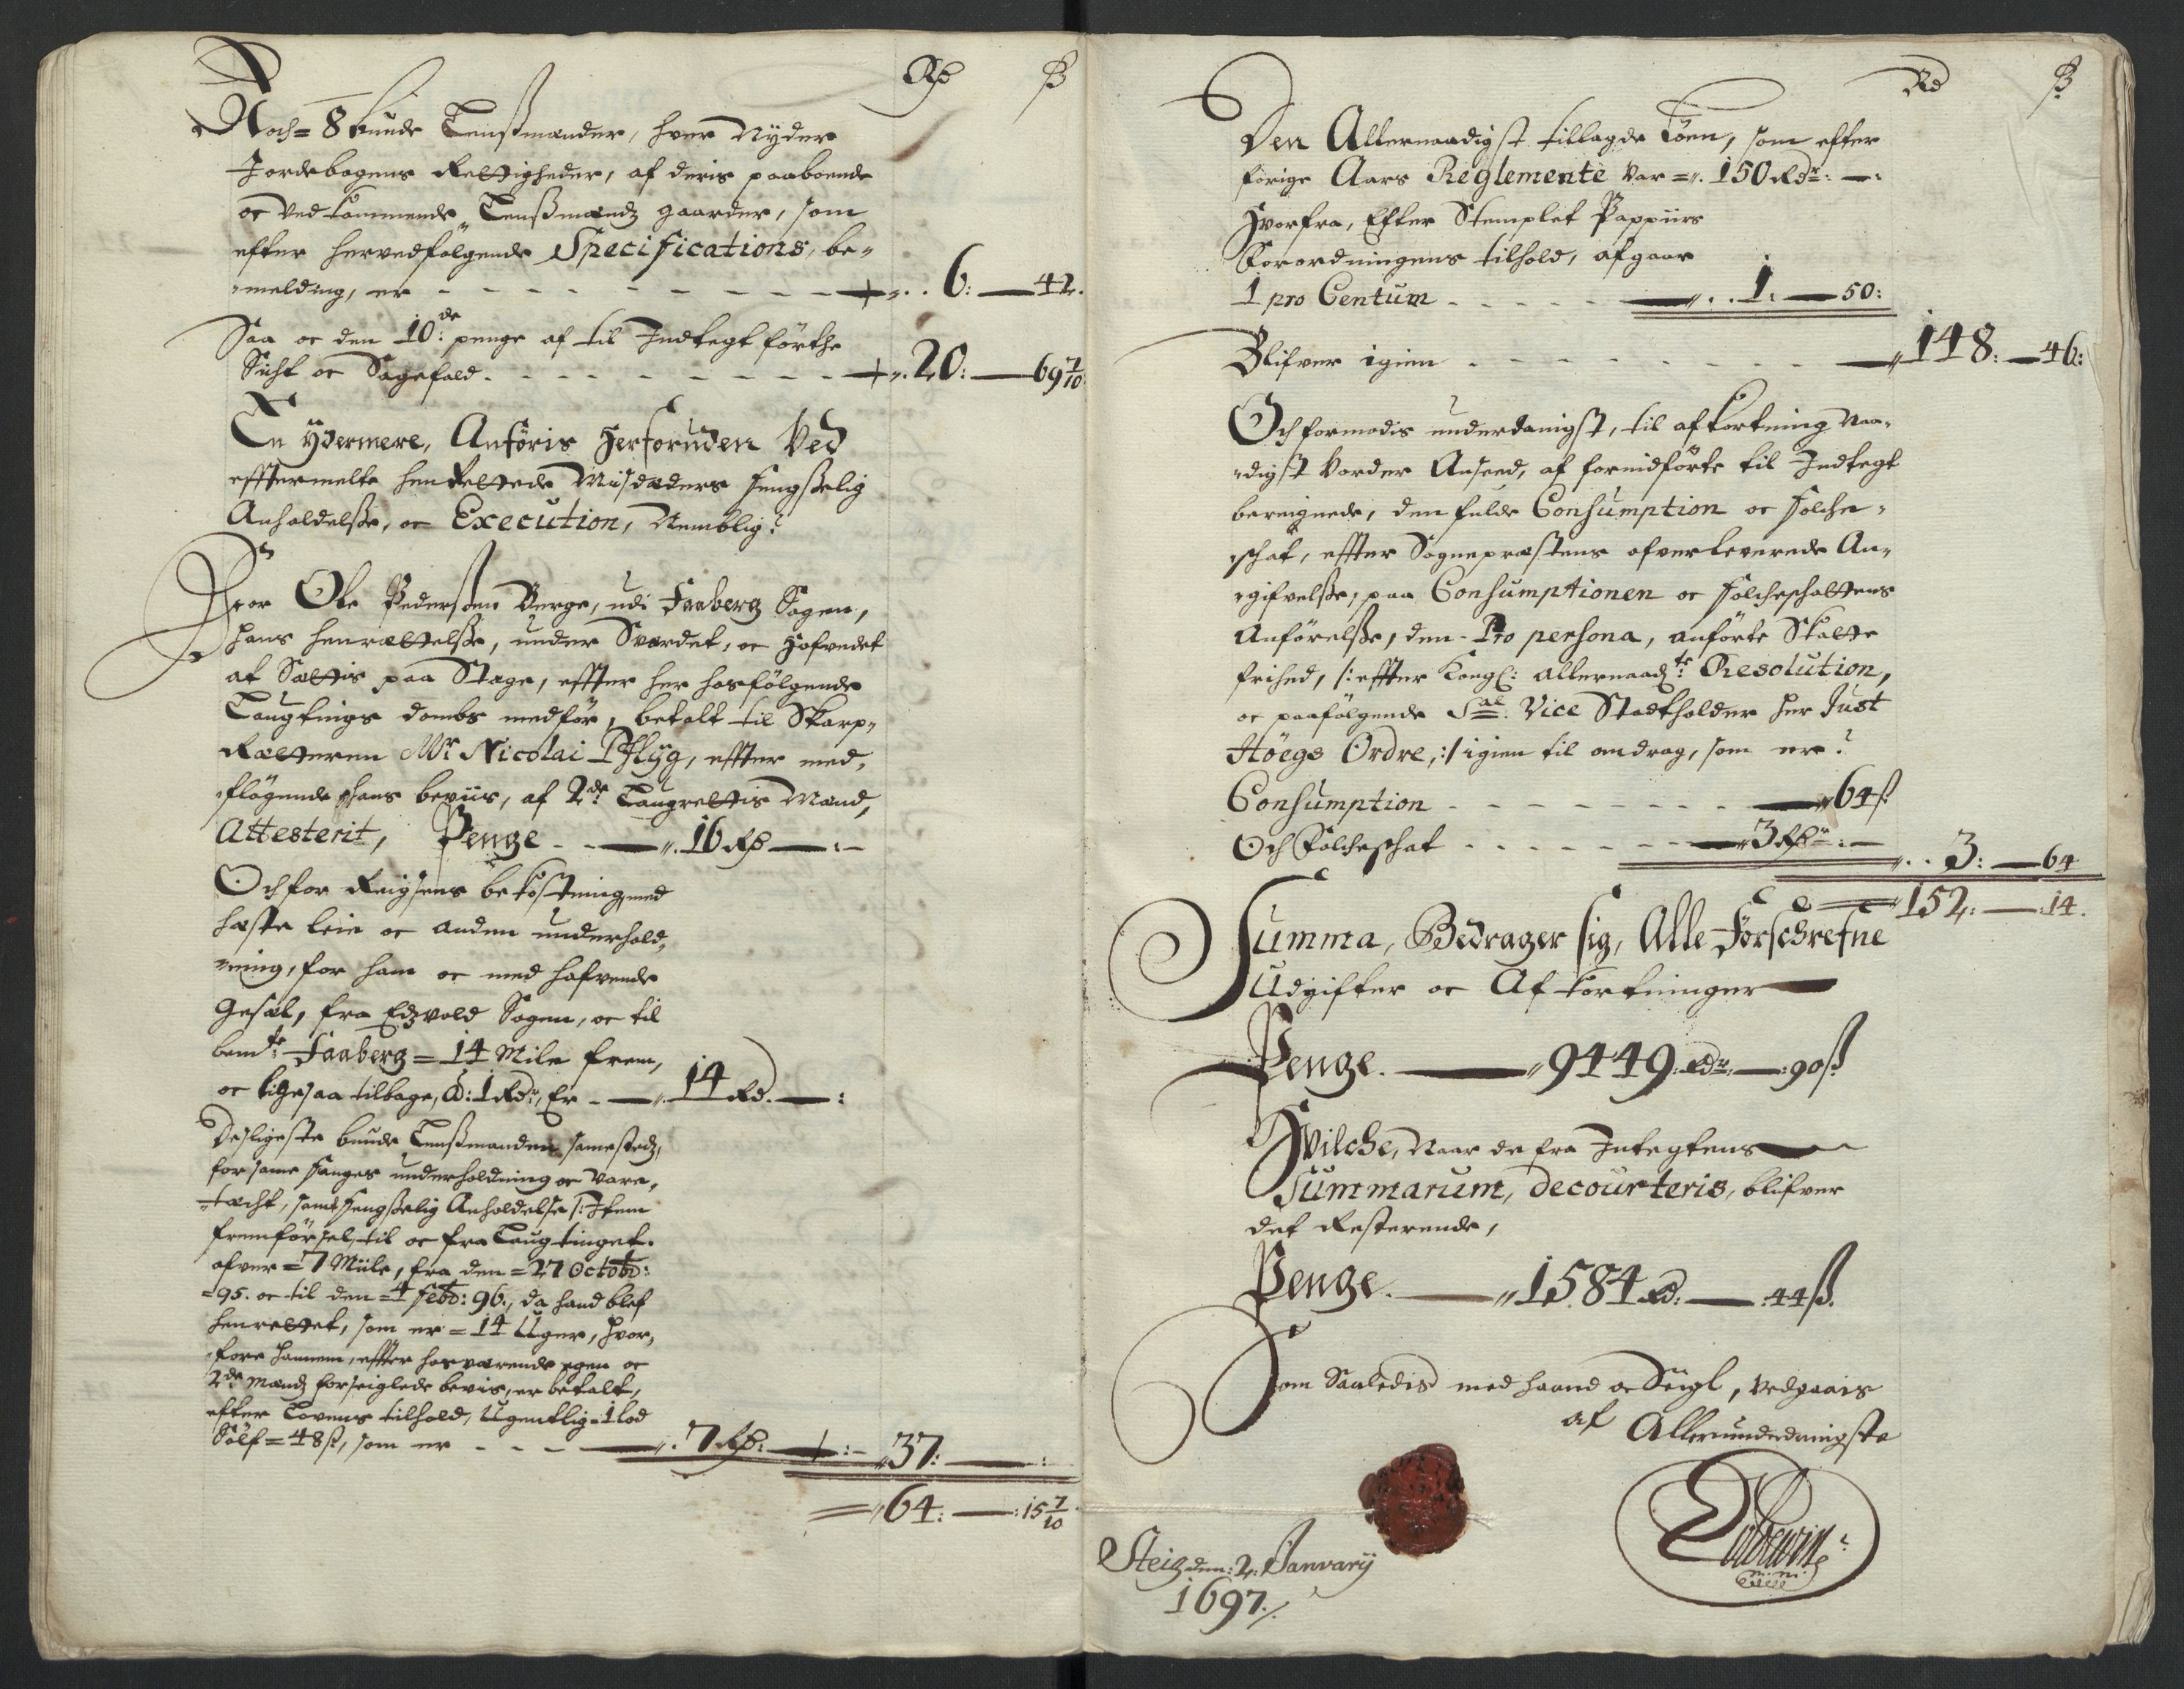 Rd ß
Noch = 8 buude Lensßmænder, hver Nyder
Jordebogens Rettigheder, af deris paaboende
oc vedkommende Lensßmændz gaarder, som
efter hervedfølgende Specifications, be-
melding, er - - - 6: — 42.
Saa oc den 10:de penge af til Indtegt førthe
Sicht oc Sagefald. - - - 20: — 69 7/10
En ydermere, Anføris Herforuden Ved
efftermelte henrettede Misdæders fengsselig
Anholdelsse, oc Execution, Nemblig:
For Ole Pedersøen Berge, udi Faaberg Sogen,
hans henrættelsse, under Sværdet, oc Hofvedet
at Sættis paa Stage, effter her hosfølgende
Laugtings dombs medfør, betalt til Skarp-
Rætteren Mr Nicolai Pflyg, effter med-
fløgende hans beviis, af 2de Laugrettis Mænd,
Attesterit, Penge - - 16 Rd — : —
Och for Reigsens bekostning, med
heste leie oc anden underhold-
ning, for ham oc med hafvende
Gesæl, fra Edzvold Sogen, oc til
bemte: Faaberg = 14 Mile frem,
oc ligesaa tilbage, à: 1 Rdr, Er - 14 Rd. — :
Desligeste buude Lensßmanden samestedz,
for same fanges underholdning oc Vare-
tæcht, samt fengsselig Anholdelse /: Item
fremførsel, til oc fra Laugtinget.
ofver = 7 Miile, fra den = 27 Octobr:
= 95. oc til den = 4 Febr: 96., da hand blef
henrettet, som er = 14 Uger, hvor-
fore hannem, effter hosværende egen oc
2de Mændz forseiglede bevis, er betalt,
efter Lovens tilhold, Ugentlig = 1 lod
Sølf = 48 ß, som er - - - 7 Rd: — : — 37: — :
64: — : 15 7/10
Rd ß
Den Allernaadigst tillagde Løen, som efter
forige Aars Reglemente var = 150 Rdr: — :
Hvorfra, Efter Stemplet Pappiirs
Forordningens tilhold, afgaar
1 pro Centum - - - 1: — 50:
Blifver igien - - - 148: — 46:
Och formodis underdanigst, til afkortning Naa-
digst vorder Anseed, af formidførte til Indtegt
beregnede, den fulde Consumption oc folche-
schat, effter Sognepræstens ofverleverede An-
gifvelsse, paa Consumptionen oc folcheschattens
Anførelsse, den - Pro persona, anførte Skatte
frihed, /: effter Kongl: allernaadte: Resolution,
oc paafølgende Sal: Vice Stadtholder her Just
Høegs Ordre, :/ igien til andrag, som er:
Consumption - - - 64 ß
Och Folcheschat - - - 3 Rdr: — 3: — 64
152: — : 14.
Summa, Bedrager sig, Alle Forschrefne
Udgifter oc Afkortninger
Penge. — 9449 Rdr — : 90 ß
Hvilche, Naar de fra Integtens
Summarum, decourteris, blifver
det Resterende,
Penge. — 1584 Rd. — : 44 ß.
Som Saaledis med haand oc Seigl, vedgaais
af Allerunderdanigste
Steig den: 2. January
1697.